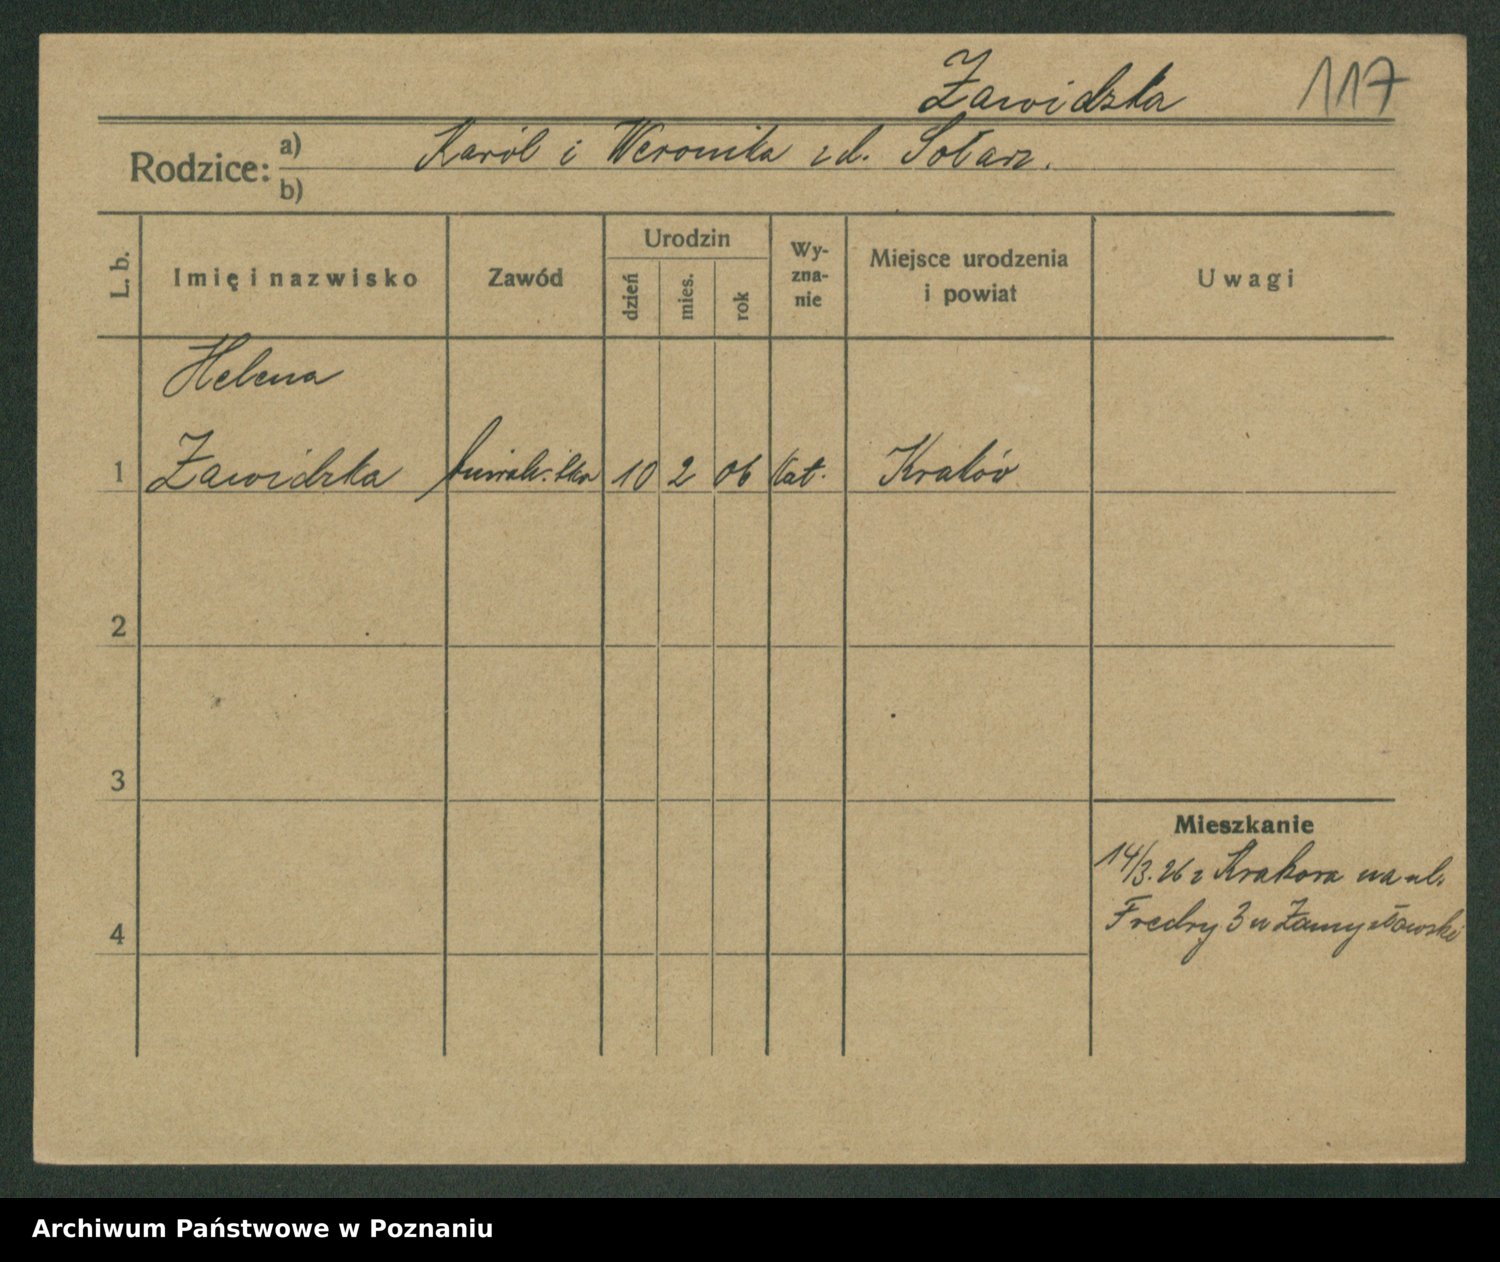 Zawidzka 117
Rodzice: a) Karól i Weronika zd. Sołarz.
b)
L. b. Imię i nazwisko Zawód Urodzin dzień mies. rok Wy-zna-nie Miejsce urodzenia i powiat Uwagi
Helena
1 Zawidzka 10 2 06 Kat. Kraków
2
3
Mieszkanie
14/3.26 z Krakowa na ul.
Fredry 3 u
4
Archiwum Państwowe w Poznaniu